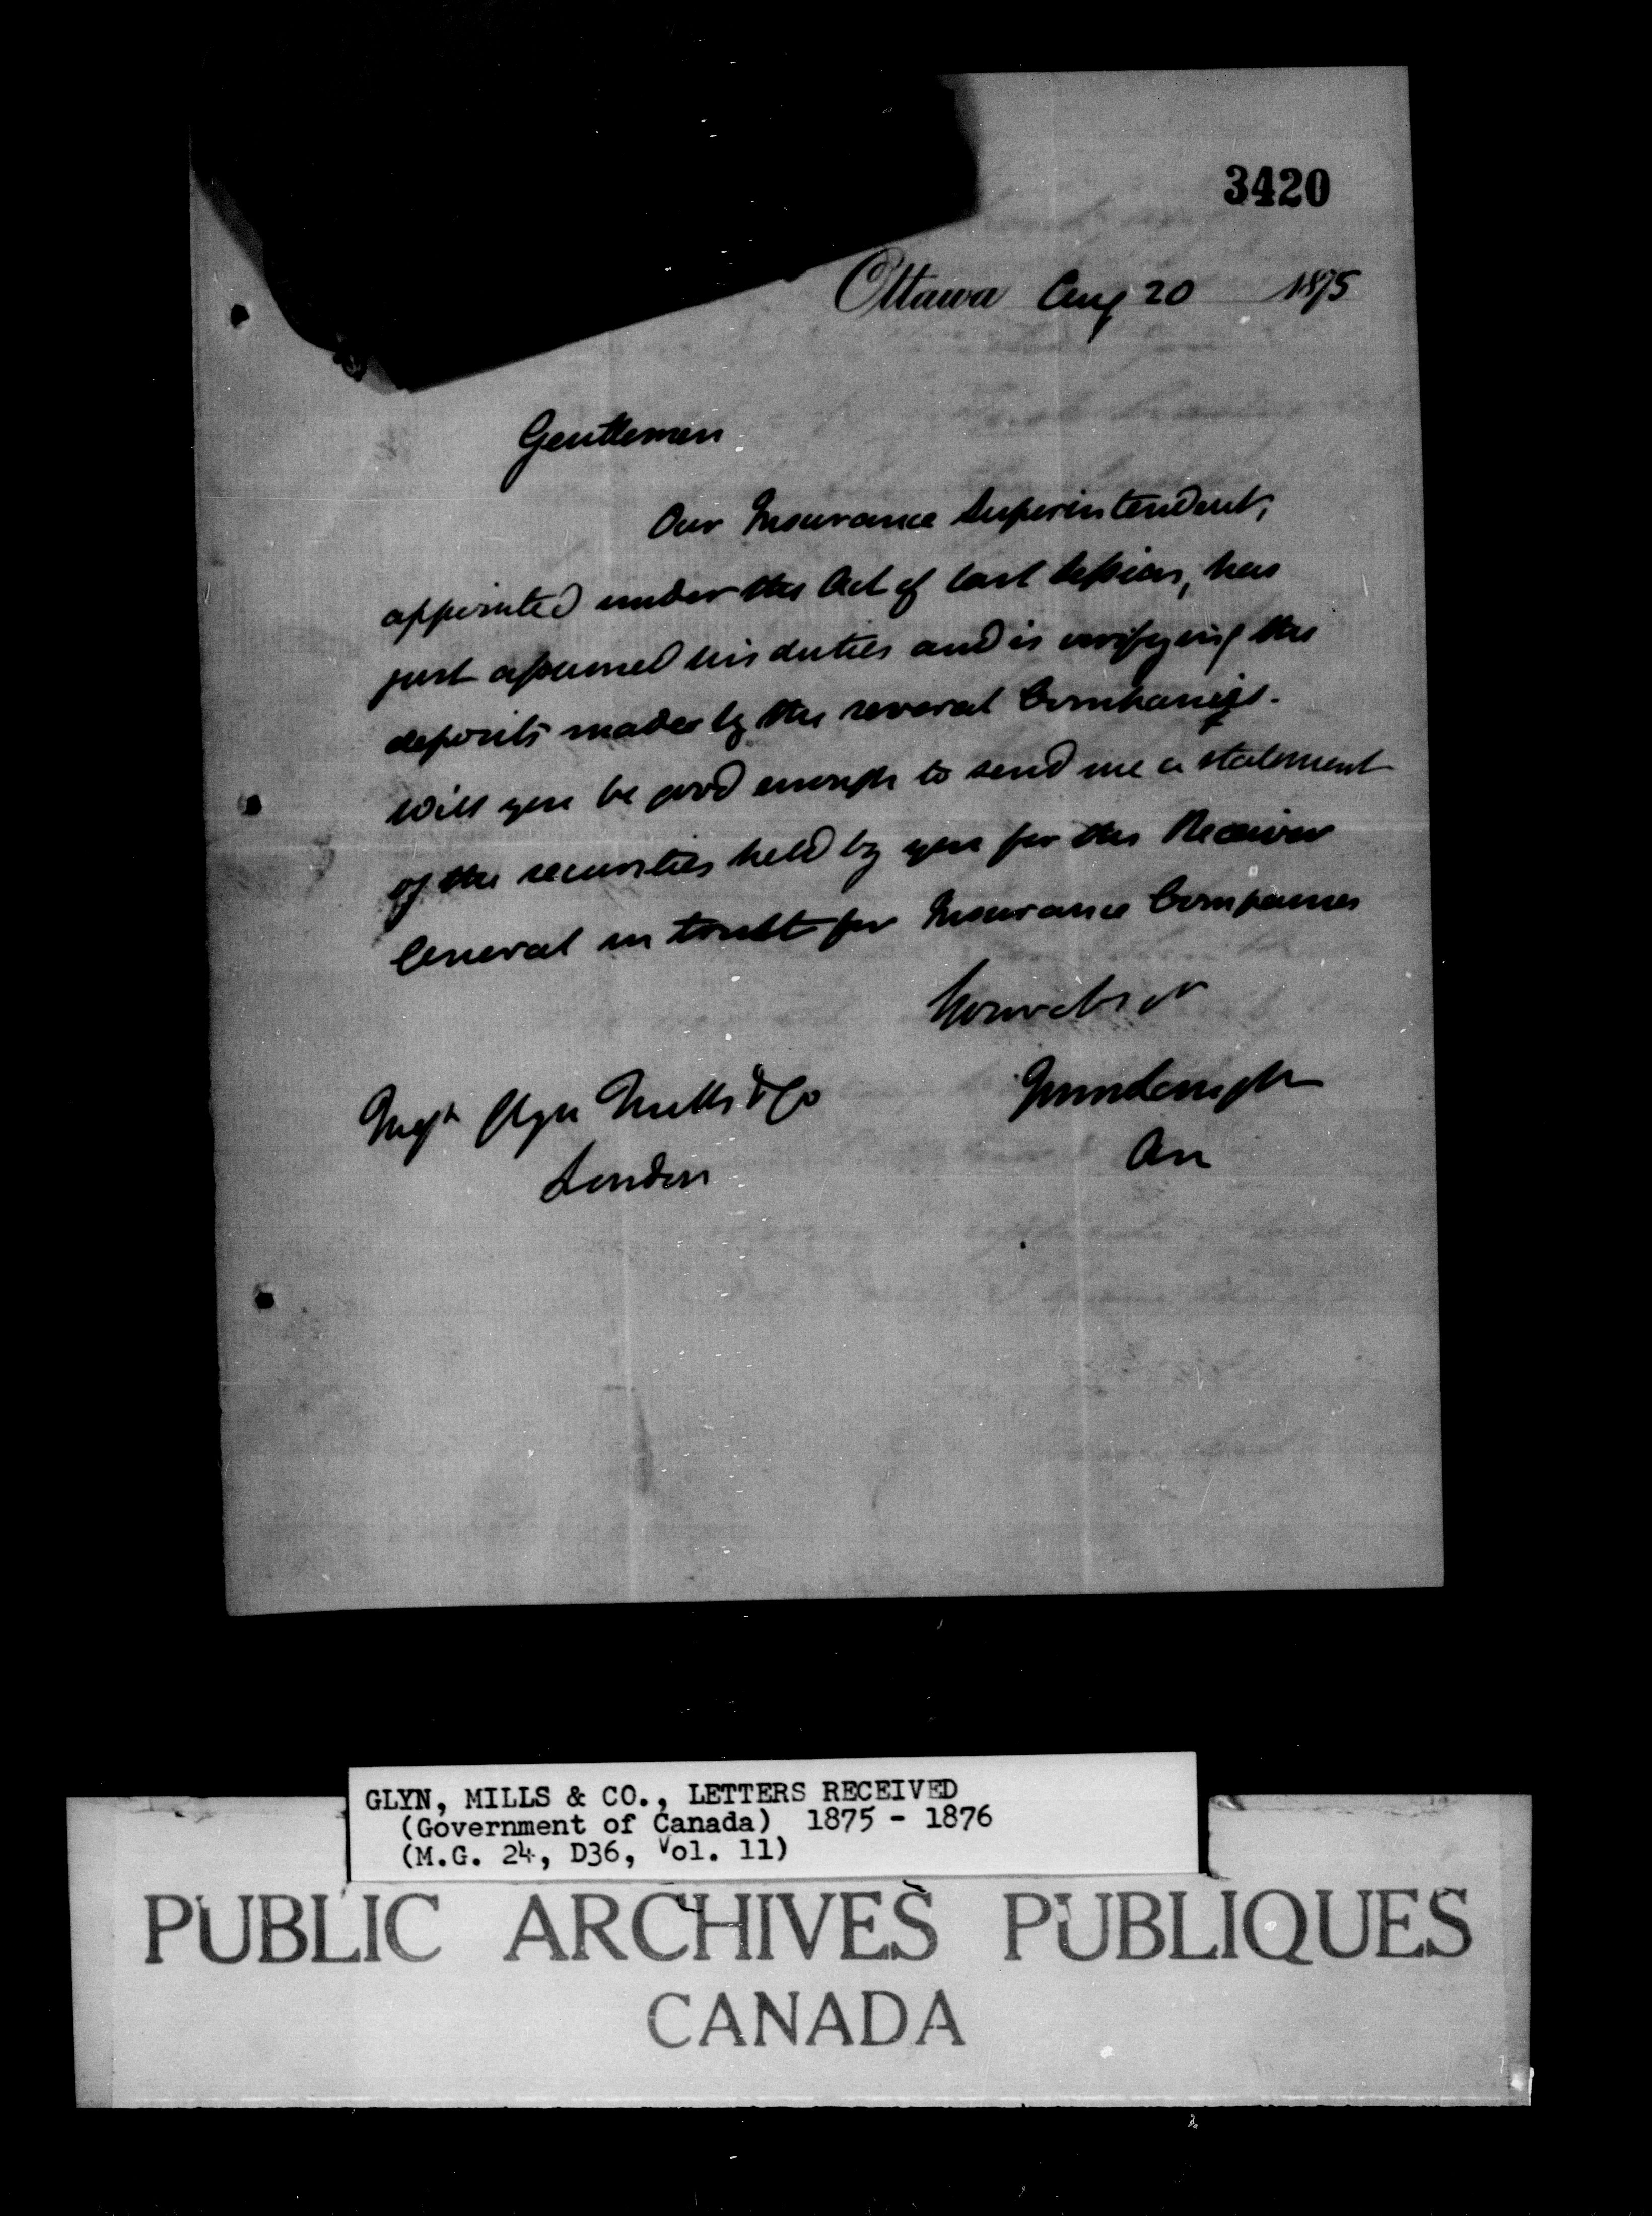 3420
Ottawa Aug 20 1875
Gentlemen
Our Insurance Superintendent,
appointed under the Act of last Session, has
just assumed his duties and is verifying the
deposits made by the several Companies.
Will you be good enough to send me a statement
of the securities held by you for the Receiver
General in trust for Insurance Companies
Yours
Messrs Glyn Mills & Co
London
GLYN, MILLS & CO., LETTERS RECEIVED
(Government of Canada) 1875 - 1876
(M.G. 24, D36, Vol. 11)
PUBLIC ARCHIVES PUBLIQUES
CANADA